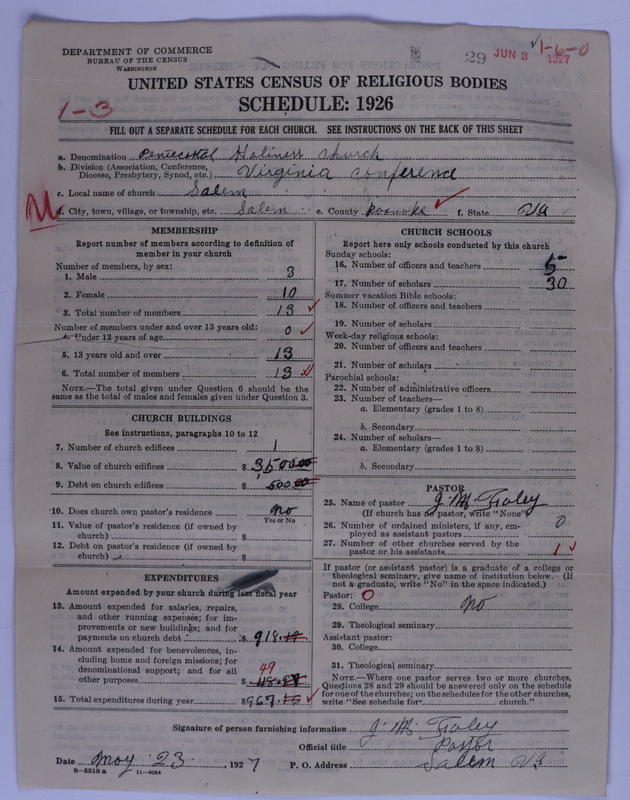 DEPARTMENT OF COMMERCE
BUREAU OF THE CENSUS
WASHINGTON
29 JUN 3 1927
1-6-0
1-3
UNITED STATES CENSUS OF RELIGIOUS BODIES
SCHEDULE: 1926
FILL OUT A SEPARATE SCHEDULE FOR EACH CHURCH. SEE INSTRUCTIONS ON THE BACK OF THIS SHEET
a. Denomination Pentecostal Holiness church
b. Division (Association, Conference, Diocese, Presbytery, Synod, etc.) Virginia conference
c. Local name of church Salem
d. City, town, village, or township, etc. Salem e. County Roanoke f. State Va
MEMBERSHIP
Report number of members according to definition of
member in your church
Number of members, by sex:
1. Male 3
2. Female 10
3. Total number of members 13
Number of members under and over 13 years old:
4. Under 13 years of age 0
5. 13 years old and over 13
6. Total number of members 13
NOTE.—The total given under Question 6 should be
same as the total of males and females given under Question 3.
CHURCH BUILDINGS
See instructions, paragraphs 10 to 12
7. Number of church edifices 1
8. Value of church edifices $ 3,500.00
9. Debt on church edifices $ 500.00
10. Does church own pastor's residence? no
Yes or No
11. Value of pastor's residence (if owned by
church) $
12. Debt on pastor's residence (if owned by
church) $
EXPENDITURES
Amount expended by your church during last fiscal year
13. Amount expended for salaries, repairs,
and other running expenses; for im-
provements or new buildings; and for
payments on church debt $ 918.
14. Amount expended for benevolences, in-
cluding home and foreign missions; for
denominational support; and for all
other purposes $ 48. 49
15. Total expenditures during year $ 967.
CHURCH SCHOOLS
Report here only schools conducted by this church
Sunday schools:
16. Number of officers and teachers 5
17. Number of scholars 30
Summer vacation Bible schools:
18. Number of officers and teachers
19. Number of scholars
Week-day religious schools:
20. Number of officers and teachers
21. Number of scholars
Parochial schools:
22. Number of administrative officers
23. Number of teachers—
a. Elementary (grades 1 to 8)
b. Secondary
24. Number of scholars—
a. Elementary (grades 1 to 8)
b. Secondary
PASTOR
25. Name of pastor J. M. Foley
(If church has no pastor, write "None")
26. Number of ordained ministers, if any, em-
ployed as assistant pastors 0
27. Number of other churches served by the
pastor or his assistants 1
If pastor (or assistant pastor) is a graduate of a college or
theological seminary, give name of institution below. (If
not a graduate, write "No" in the space indicated.)
Pastor: 0
28. College no
29. Theological seminary
Assistant pastor:
30. College
31. Theological seminary
NOTE.—Where one pastor serves two or more churches,
Questions 28 and 29 should be answered only on the schedule
for one of the churches; on the schedules for the other churches,
write "See schedule for church."
Signature of person furnishing information J. M. Foley
Official title Pastor
Date May 23, 1927 P. O. Address Salem Va
8—5518a 11—9054